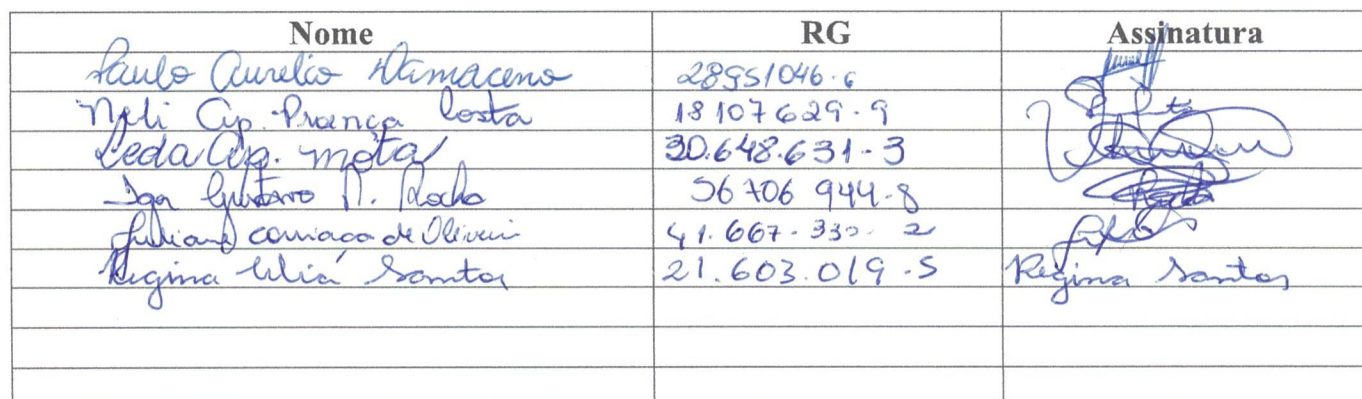 Nome RG Assinatura
Paulo Aurelio Damaceno 28951046-6
Neli Ap. Proença Costa 18107629-9
Leda Ap. Mota 30.648.631-3
Gustavo Rocha 56706 944-8
de Oliveira 41.667.332-2
Regina Célia Santos 21.603.019-5 Regina Santos